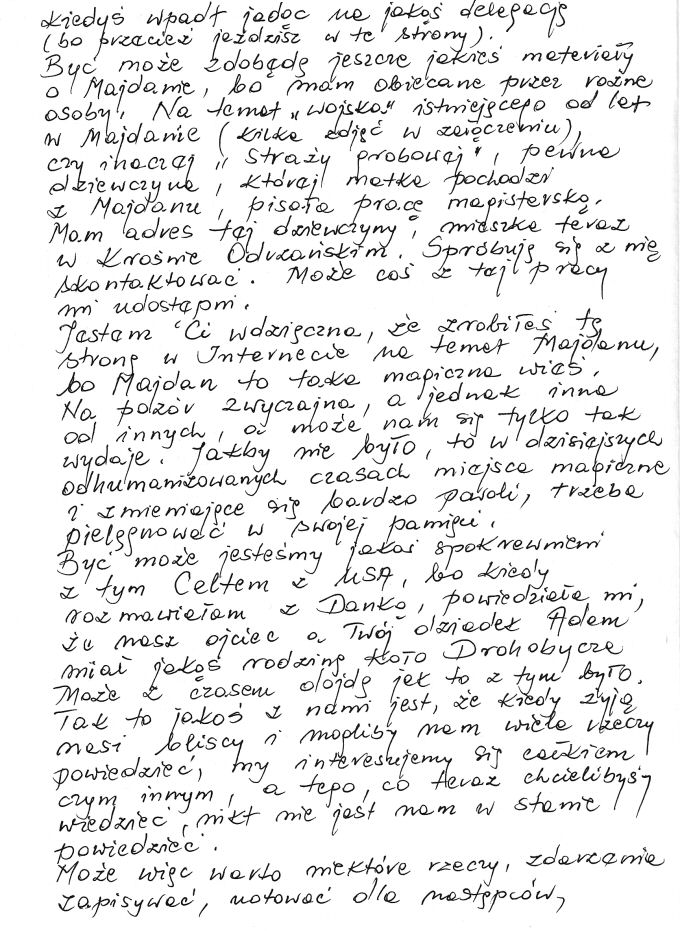 kiedyś wpadł jadąc na jakąś delegację
(bo przecież jeździsz w te strony).
Być może zdobędę jeszcze jakieś materiały
o Majdanie, bo mam obiecane przez różne
osoby. Na temat „wojska" istniejącego od lat
w Majdanie (kilka zdjęć w załączeniu),
czy inaczej „Straży grobowej", pewna
dziewczyna, której matka pochodzi
z Majdanu, pisała pracę magisterską.
Mam adres tej dziewczyny, mieszka teraz
w Krośnie Odrzańskim. Spróbuję się z nią
skontaktować. Może coś z tej pracy
mi udostępni.
Jestem Ci wdzięczna, że zrobiłeś tę
stronę w Internecie na temat Majdanu,
bo Majdan to taka magiczna wieś.
Na pozór zwyczajna, a jednak inna
od innych, a może nam się tylko tak
wydaje. Jakby nie było, to w dzisiejszych
odhumanizowanych czasach miejsca magiczne
i zmieniające się bardzo powoli, trzeba
pielęgnować w swojej pamięci.
Być może jesteśmy jakoś spokrewnieni
z tym Celtem z USA, bo kiedy
rozmawiałam z Danką, powiedziała mi,
że nasz ojciec a Twój dziadek Adam
miał jakąś rodzinę koło Drohobycza
Może z czasem dojdę jak to z tym było.
Tak to jakoś z nami jest, że kiedy żyją
nasi bliscy i mogliby nam wiele rzeczy
powiedzieć, my interesujemy się całkiem
czym innym, a tego, co teraz chcielibyśmy
wiedzieć, nikt nie jest nam w stanie
powiedzieć.
Może więc warto niektóre rzeczy, zdarzenia
zapisywać, notować dla następców,